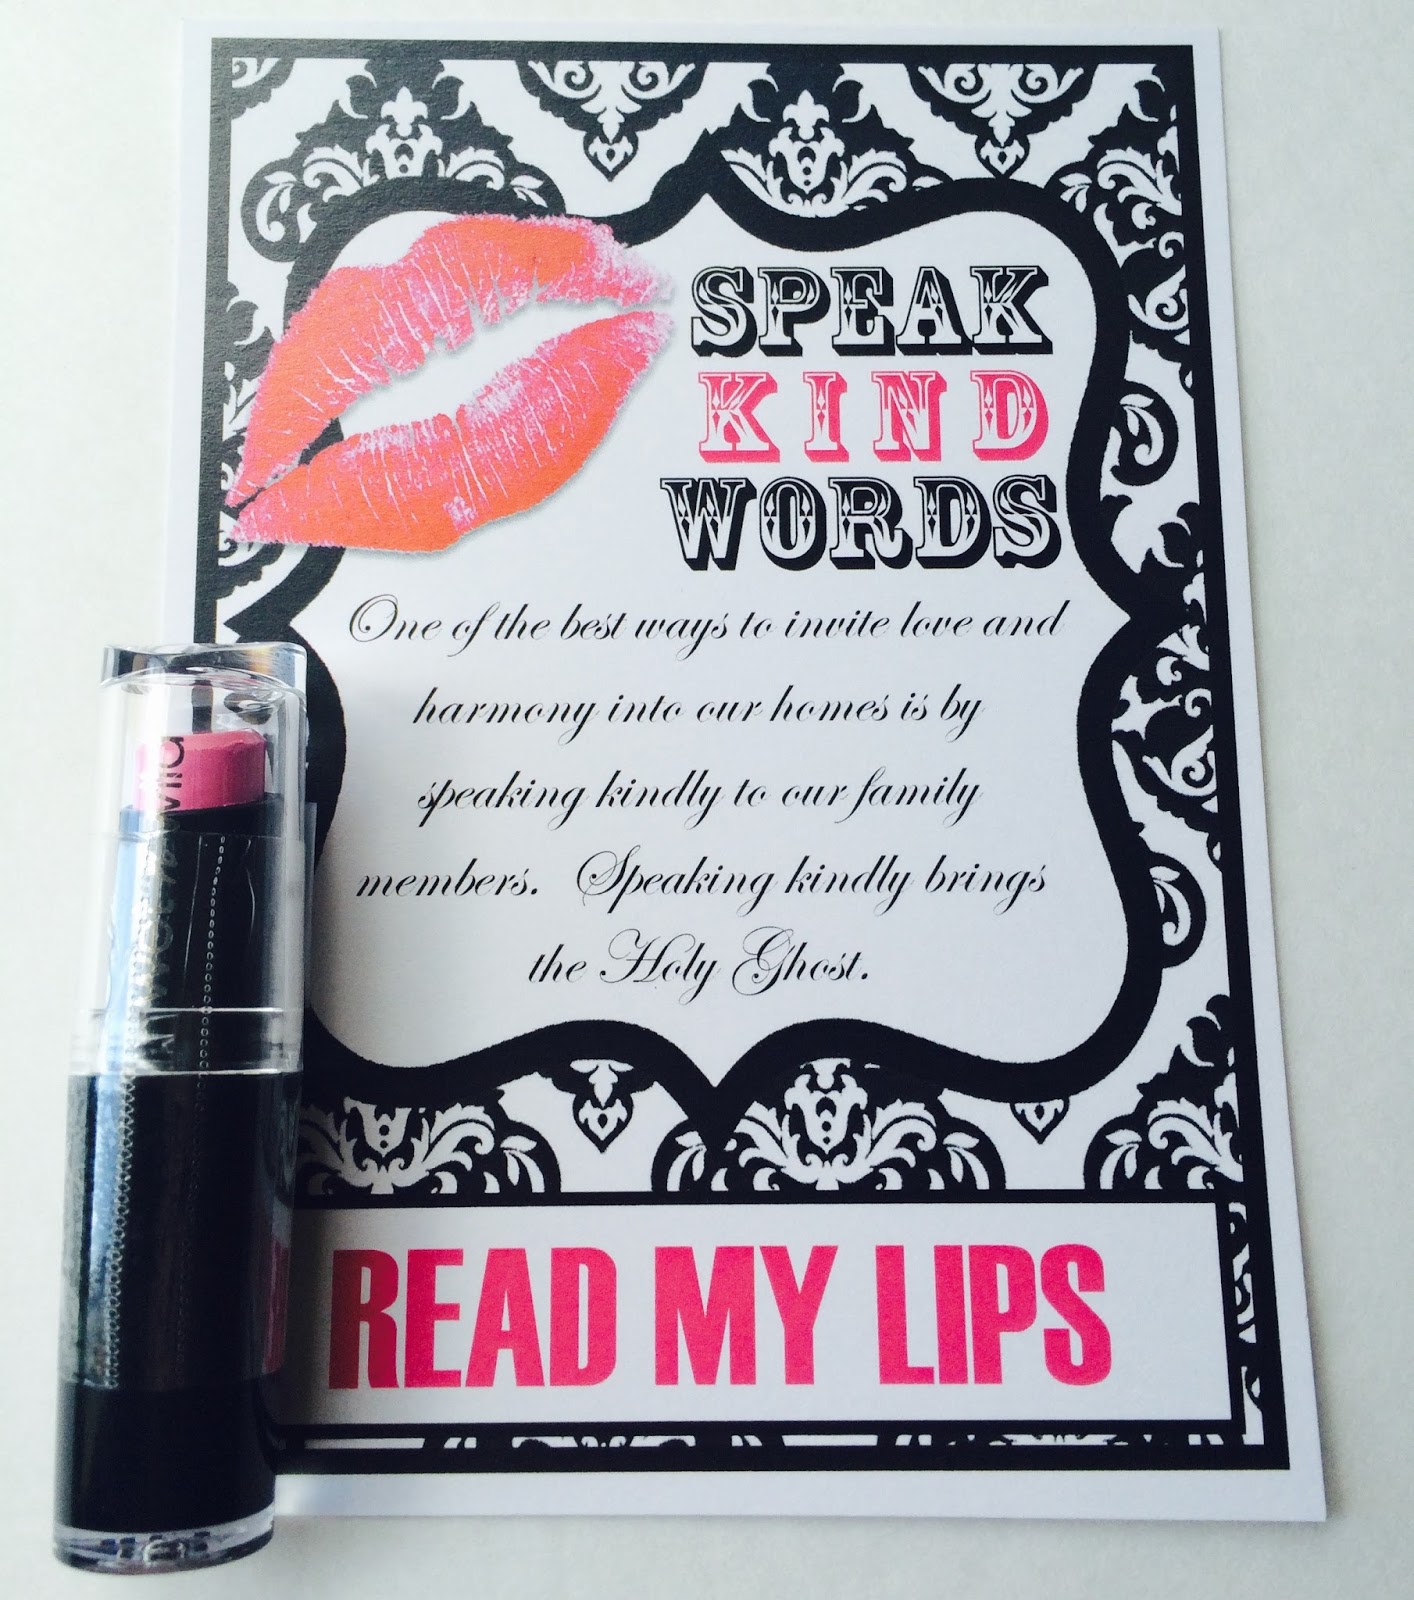 SPEAK
KIND
WORDS
One of the best ways to invite love and
harmony into our homes is by
speaking kindly to our family
members. Speaking kindly brings
the Holy Ghost.
READ MY LIPS
wet n wild